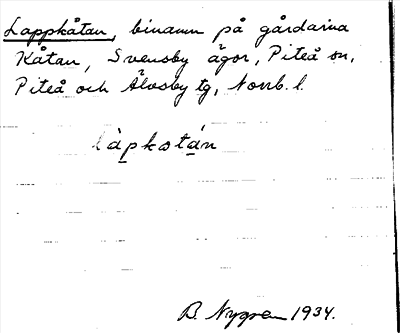 Lappkåtan, binamn på gårdarna
Kåtan, Svensby ägor, Piteå sn,
Piteå och Älvsby tg, Norrb. l.
làpkatán
B. Nygren 1934.